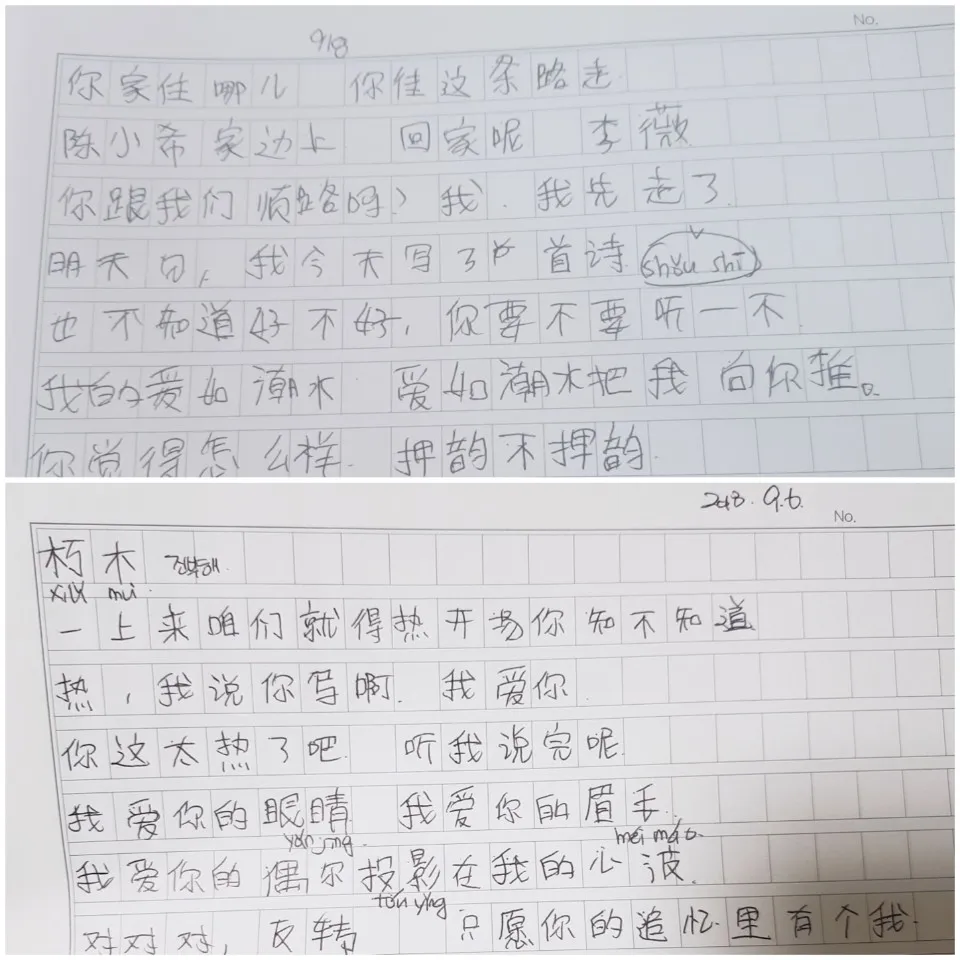 No.
918
你家住哪儿 你住这条路走
陈小希家边上 回家呢 李薇
你跟我们顺路呀? 我、我先走了
明天见, 我今天写了 首诗 shǒu shī
也不知道好不好, 你要不要听一不
我的爱如潮水 爱如潮水把我向你推。
你觉得怎么样. 押韵不押韵.
2018. 9.6.
No.
朽木
xiǔ mù
一上来咱们就得热开场你知不知道
热, 我说你写啊. 我爱你.
你这太热了吧 听我说完呢.
我爱你的眼睛 我爱你的眉毛.
yǎn jīng. méi máo.
我爱你的偶尔投影在我的心波.
tóu yǐng
对对对, 反转 只愿你的追忆里有个我.